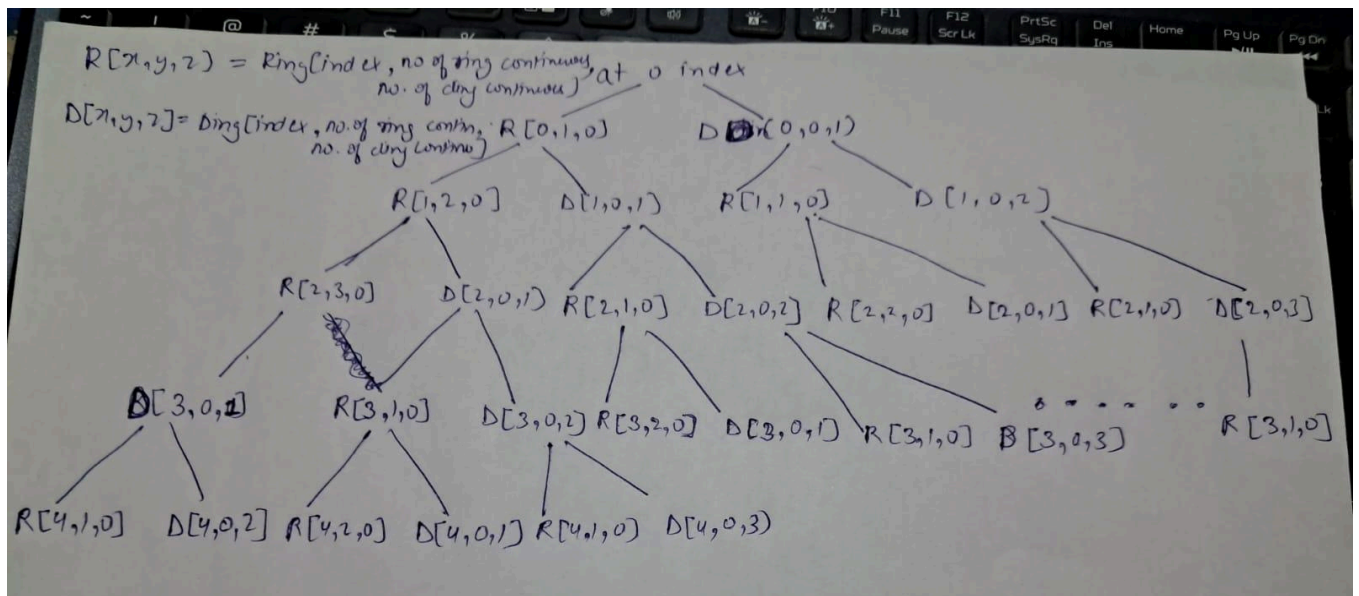 @ # $ %
F11 Pause F12 Scr Lk PrtSc SysRq Del Ins Home Pg Up Pg Dn
Lk
R[x,y,z) = Ring[index, no of ring continuous, at 0 index
no. of ding continuous)
D[x,y,z]= Ding[index, no. of ring contin, R[0,1,0) D (0,0,1)
no. of ding continuo]
R[1,2,0] D[1,0,1) R[1,1,0) D [1,0,2)
R[2,3,0] D[2,0,1) R[2,1,0) D[2,0,2] R[2,2,0] D[2,0,1] R[2,1,0) D[2,0,3]
D[3,0,1] R[3,1,0] D[3,0,2) R[3,2,0] D[3,0,1) R[3,1,0] D [3,0,3) . . . . . . R[3,1,0]
R[4,1,0] D[4,0,2] R[4,2,0] D[4,0,1] R[4,1,0) D[4,0,3)